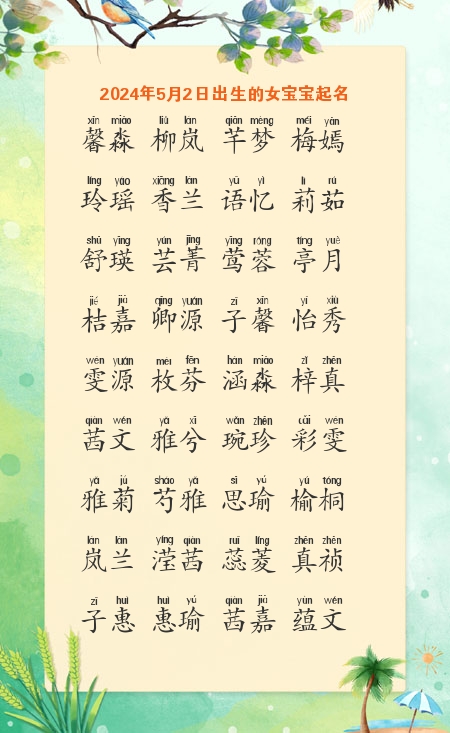 2024年5月2日出生的女宝宝起名
xīn miǎo liǔ lán qiān mèng méi yān
馨淼 柳岚 芊梦 梅嫣
líng yáo xiāng lán yǔ yì lì rú
玲瑶 香兰 语忆 莉茹
shū yīng yún jīng yīng róng tíng yuè
舒瑛 芸菁 莺蓉 亭月
jié jiā qīng yuán zǐ xīn yí xiù
桔嘉 卿源 子馨 怡秀
wén yuán méi fēn hán miǎo zǐ zhēn
雯源 枚芬 涵淼 梓真
qiàn wén yǎ xī wǎn zhēn cǎi wén
茜文 雅兮 琬珍 彩雯
yǎ jú sháo yǎ sī yú yú tóng
雅菊 芍雅 思瑜 榆桐
lán lán yíng qiàn ruǐ líng zhēn zhēn
岚兰 滢茜 蕊菱 真祯
zǐ huì huì yú qiàn jiā yùn wén
子惠 惠瑜 茜嘉 蕴文